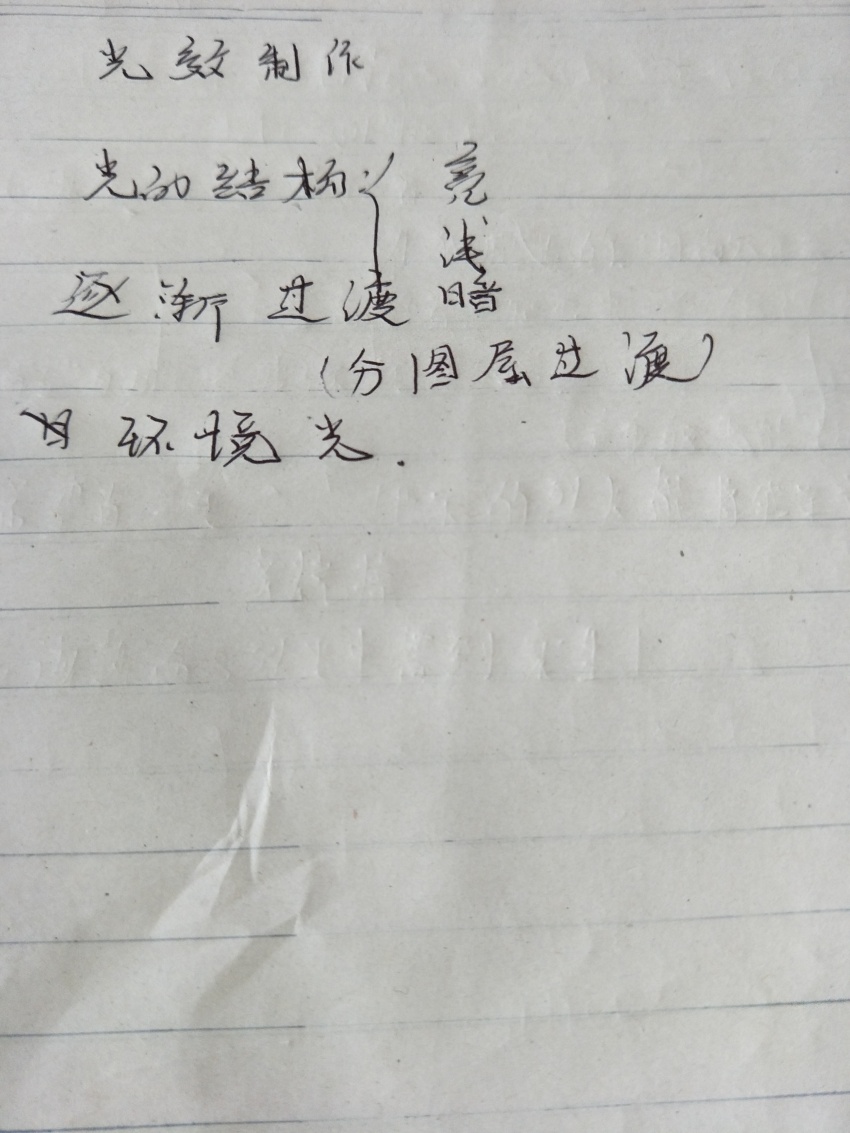 光效制作
光的结构:{亮
浅
逐渐过渡 暗
(分图层过渡)
环境光.